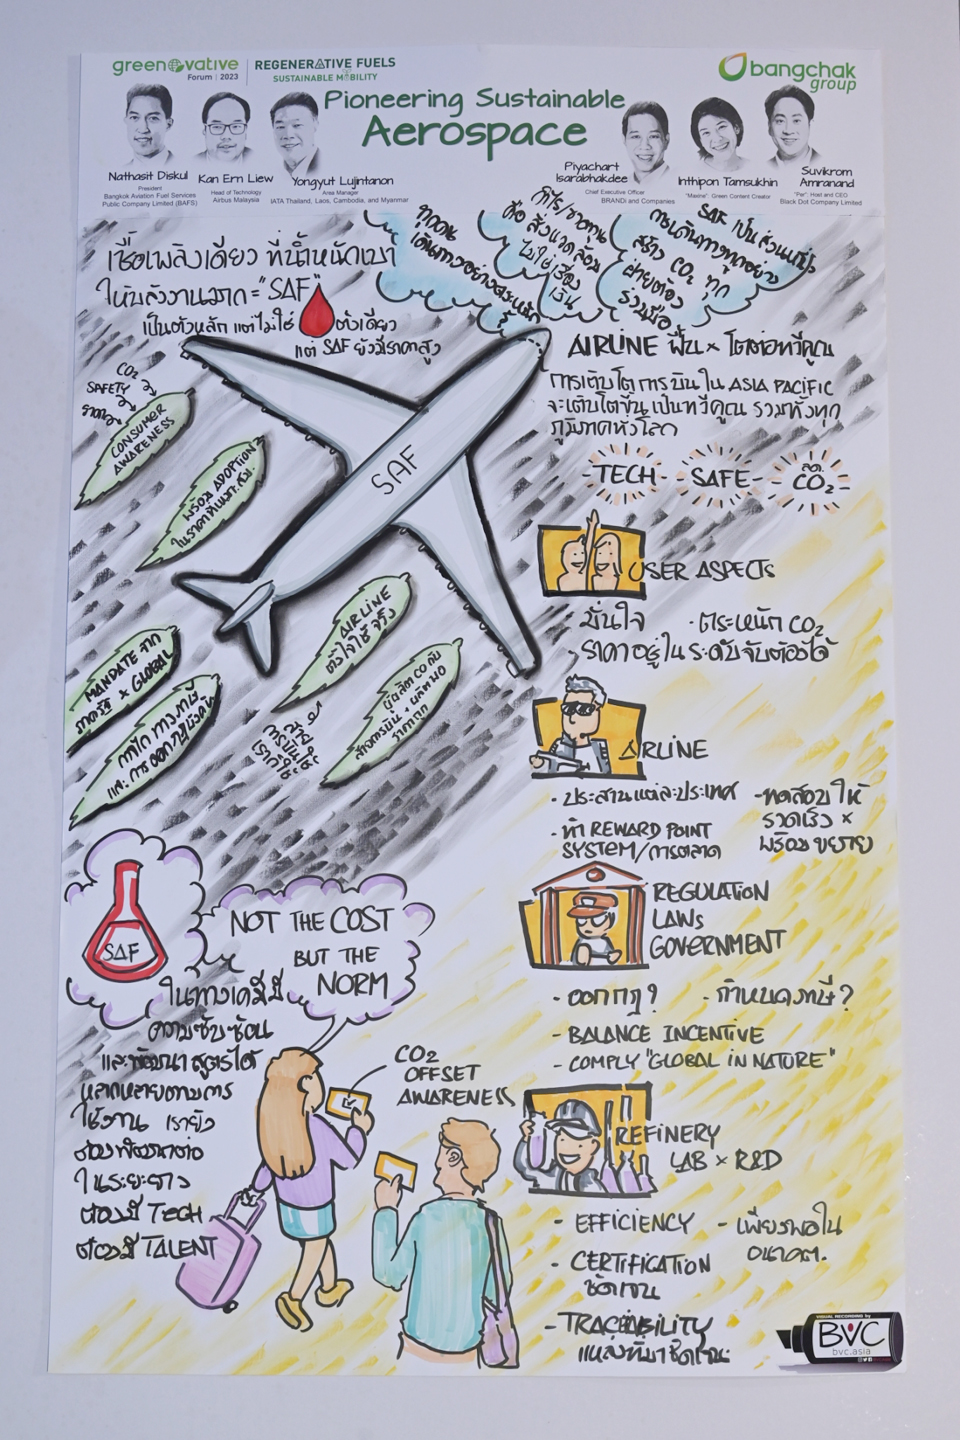 greenovative
Forum | 2023
REGENERATIVE FUELS
SUSTAINABLE MOBILITY
bangchak
group
Pioneering Sustainable
Aerospace
Nathasit Diskul
President
Bangkok Aviation Fuel Services
Public Company Limited (BAFS)
Kan Ern Liew
Head of Technology
Airbus Malaysia
Yongyut Lujintanon
Area Manager
IATA Thailand, Laos, Cambodia, and Myanmar
Piyachart
Isarabhakdee
Chief Executive Officer
BRANDi and Companies
Inthipon Tamsukhin
"Maxine" Green Content Creator
Suvikrom
Amranand
"Per", Host and CEO
Black Dot Company Limited
ทุกคน
เดินทางอย่างตระหนัก
กำไร/ขาดทุน
คือ สิ่งแวดล้อม
ไม่ใช่เรื่อง
เงิน
SAF เป็นส่วนหนึ่ง
การเดินทางทุกอย่าง
สร้าง CO2 ทุก
ฝ่ายต้อง
ร่วมมือ
เชื้อเพลิงเดียว ที่น้ำหนักเบา
ให้พลังงานมาก = "SAF"
เป็นตัวหลัก แต่ไม่ใช่ ตัวเดียว
แต่ SAF ยังมีราคาสูง
AIRLINE ฟื้น × โตต่อทวีคูณ
การเติบโตการบิน ใน ASIA PACIFIC
จะเติบโตขึ้นเป็นทวีคูณ รวมทั้งทุก
ภูมิภาคทั่วโลก
TECH
SAFE
ลด
CO2
CO2
SAFETY
ราคา
CONSUMER
AWARENESS
พร้อม ADOPTION
SAF
USER ASPECTS
มั่นใจ
· ตระหนัก CO2
· ราคาอยู่ในระดับจับต้องได้
MANDATE จาก
ภาครัฐ × GLOBAL
AIRLINE
ตั้งใจใช้จริง
สายการบินใช้
เราก็ใช้
AIRLINE
· ประสานแต่ละประเทศ
· ทำ REWARD POINT
SYSTEM/การตลาด
- ทดสอบให้
รวดเร็ว ×
พร้อมขยาย
REGULATION
LAWS
GOVERNMENT
- ออกกฎ?
- กำหนดภาษี?
- BALANCE INCENTIVE
- COMPLY "GLOBAL IN NATURE"
SAF
NOT THE COST
BUT THE
NORM
ในทางเคมีมี
ความซับซ้อน
และพัฒนาสูตรได้
หลากหลายตามการ
ใช้งาน เรายัง
ต้องพัฒนาต่อ
ในระยะยาว
ต้องมี TECH
ต้องมี TALENT
CO2
OFFSET
AWARENESS
REFINERY
LAB × R&D
- EFFICIENCY
- เพียงพอใน
อนาคต.
· CERTIFICATION
ชัดเจน
- TRACEABILITY
แหล่งที่มาชัดเจน
VISUAL RECORDING by
BVC
bvc.asia